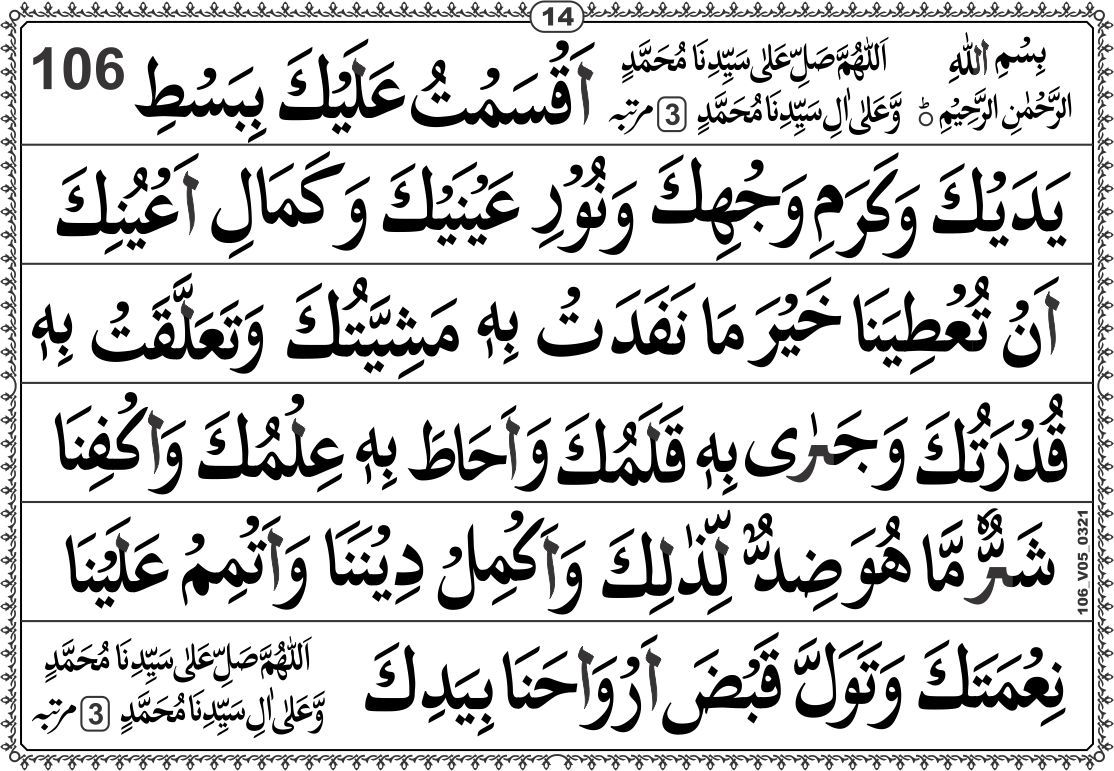 14
بِسْمِ اللهِ اَللّٰهُمَّ صَلِّ عَلٰی سَیِّدِنَا مُحَمَّدٍ
الرَّحْمٰنِ الرَّحِیْمِ ؕ وَّعَلٰی اٰلِ سَیِّدِنَا مُحَمَّدٍ 3 مرتبہ
اَقْسَمْتُ عَلَیْكَ بِبَسْطِ 106
یَدَیْكَ وَكَرَمِ وَجْهِكَ وَنُوْرِ عَیْنَیْكَ وَكَمَالِ اَعْیُنِكَ
اَنْ تُعْطِیَنَا خَیْرَ مَا نَفَدَتْ بِهٖ مَشِیَّتُكَ وَتَعَلَّقَتْ بِهٖ
قُدْرَتُكَ وَجَرٰی بِهٖ قَلَمُكَ وَاَحَاطَ بِهٖ عِلْمُكَ وَاكْفِنَا
شَرَّ مَّا هُوَ ضِدٌّ لِّذٰلِكَ وَاَكْمِلْ دِیْنَنَا وَاَتْمِمْ عَلَیْنَا
106_V05_0321
نِعْمَتَكَ وَتَوَلَّ قَبْضَ اَرْوَاحَنَا بِیَدِكَ
اَللّٰهُمَّ صَلِّ عَلٰی سَیِّدِنَا مُحَمَّدٍ
وَّعَلٰی اٰلِ سَیِّدِنَا مُحَمَّدٍ 3 مرتبہ